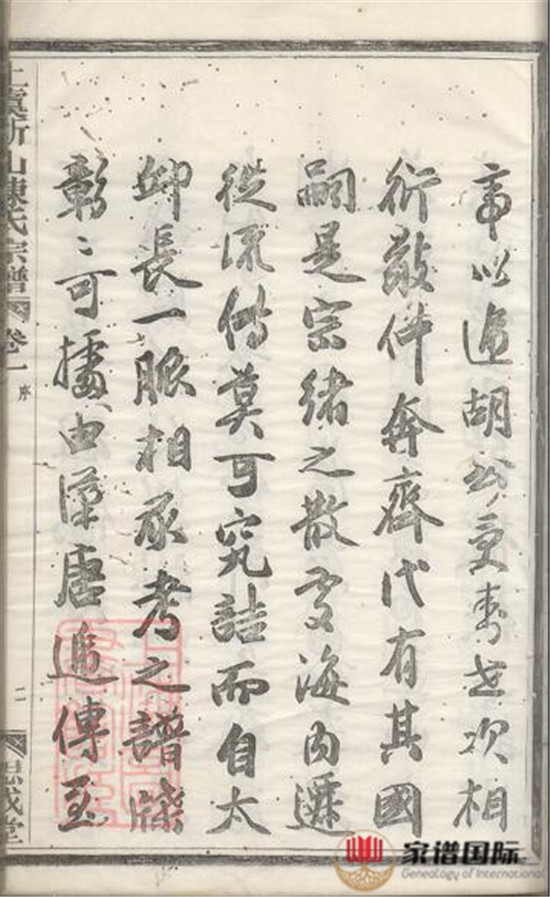 帝以胡公世次相
衍敬仲奔齊代有其國
嗣是宗緒之散處海內遷
徙流傳莫可究詰而自太
邱長一脈相承考之譜牒
彰〻可據由漢唐傳至
上虞新山陳氏宗譜 卷一 序 二 思成堂
家谱国际
Genealogy of International